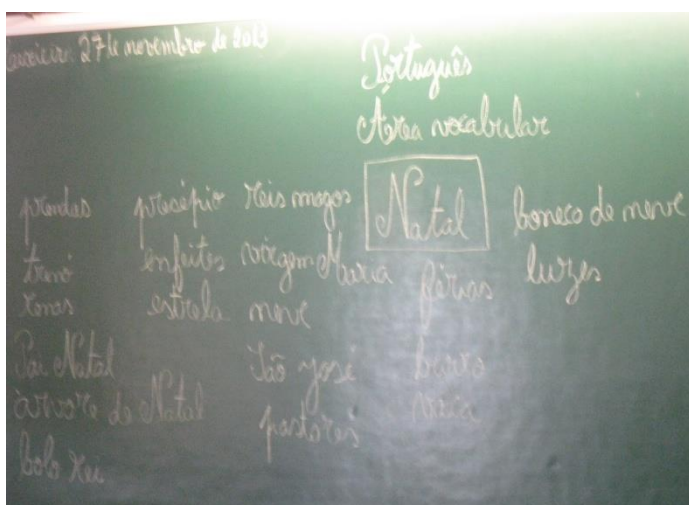 27 de novembro de 2013
Português
Área vocabular
prendas presépio reis magos Natal boneco de neve
trenó enfeites virgem Maria férias luzes
renas estrela neve
Pai Natal São josé burro
árvore de Natal pastores vaca
bolo rei